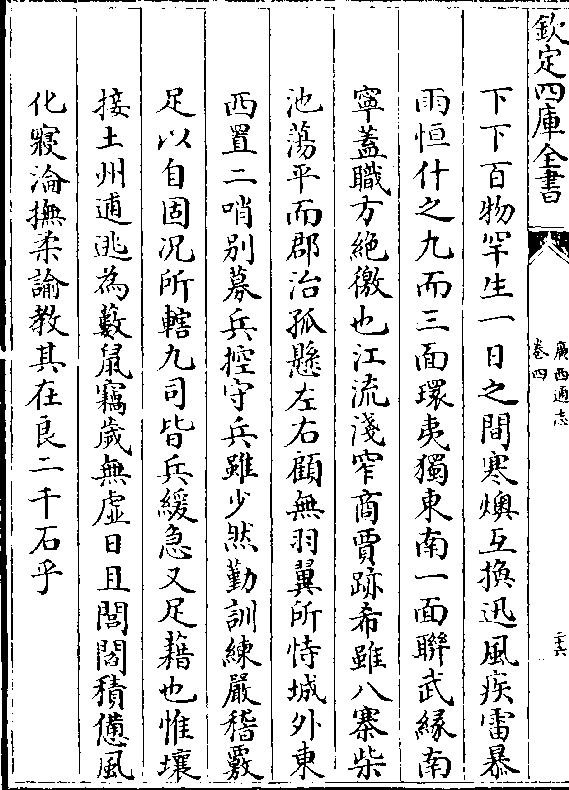 欽定四庫全書
廣西通志
卷四
二六
下下百物罕生一日之間寒燠互換迅風疾雷暴
雨恒什之九而三面環夷獨東南一面聯武緣南
寧蓋職方絶徼也江流淺窄商賈跡希雖八寨柴
池蕩平而郡治孤懸左右顧無羽翼所恃城外東
西置二哨别募兵控守兵雖少然勤訓練嚴稽覈
足以自固况所轄九司皆兵緩急又足藉也惟壤
接土州逋逃為藪鼠竊歲無虛日且閭閻積憊風
化寢淪撫柔諭教其在良二千石乎